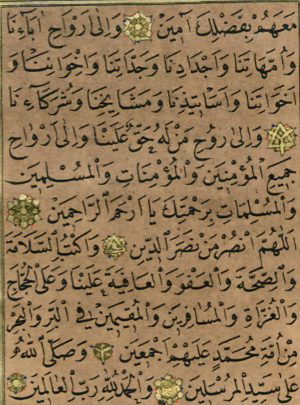 مَعَهُمْ بِفَضْلِكَ اٰمِينَ وَاِلٰى اَرْوَاحِ اٰبَآءِنَا
وَاُمَّهَاتِنَا وَاَجْدَادِنَا وَجَدَّاتِنَا وَاِخْوَانِنَا وَ
اَخَوَاتِنَا وَاَسَاتِيذِنَا وَمَشَايِخِنَا وَشُرَكَآءِنَا
وَاِلٰى رُوحِ مَنْ لَهُ حَقٌّ عَلَيْنَا وَاِلٰى اَرْوَاحِ
جَمِيعِ الْمُؤْمِنِينَ وَالْمُؤْمِنَاتِ وَالْمُسْلِمِينَ
وَالْمُسْلِمَاتِ بِرَحْمَتِكَ يَا اَرْحَمَ الرَّاحِمِينَ
اَللّٰهُمَّ انْصُرْ مَنْ نَصَرَ الدِّينَ وَاكْتُبِ السَّلَامَةَ
وَالصِّحَّةَ وَالْعَفْوَ وَالْعَافِيَةَ عَلَيْنَا وَعَلَى الْحُجَّاجِ
وَالْغُزَاةِ وَالْمُسَافِرِينَ وَالْمُقِيمِينَ فِى الْبَرِّ وَالْبَحْرِ
مِنْ اُمَّةِ مُحَمَّدٍ عَلَيْهِمْ اَجْمَعِينَ وَصَلَّى اللّٰهُ
عَلٰى سَيِّدِ الْمُرْسَلِينَ وَالْحَمْدُ لِلّٰهِ رَبِّ الْعَالَمِينَ